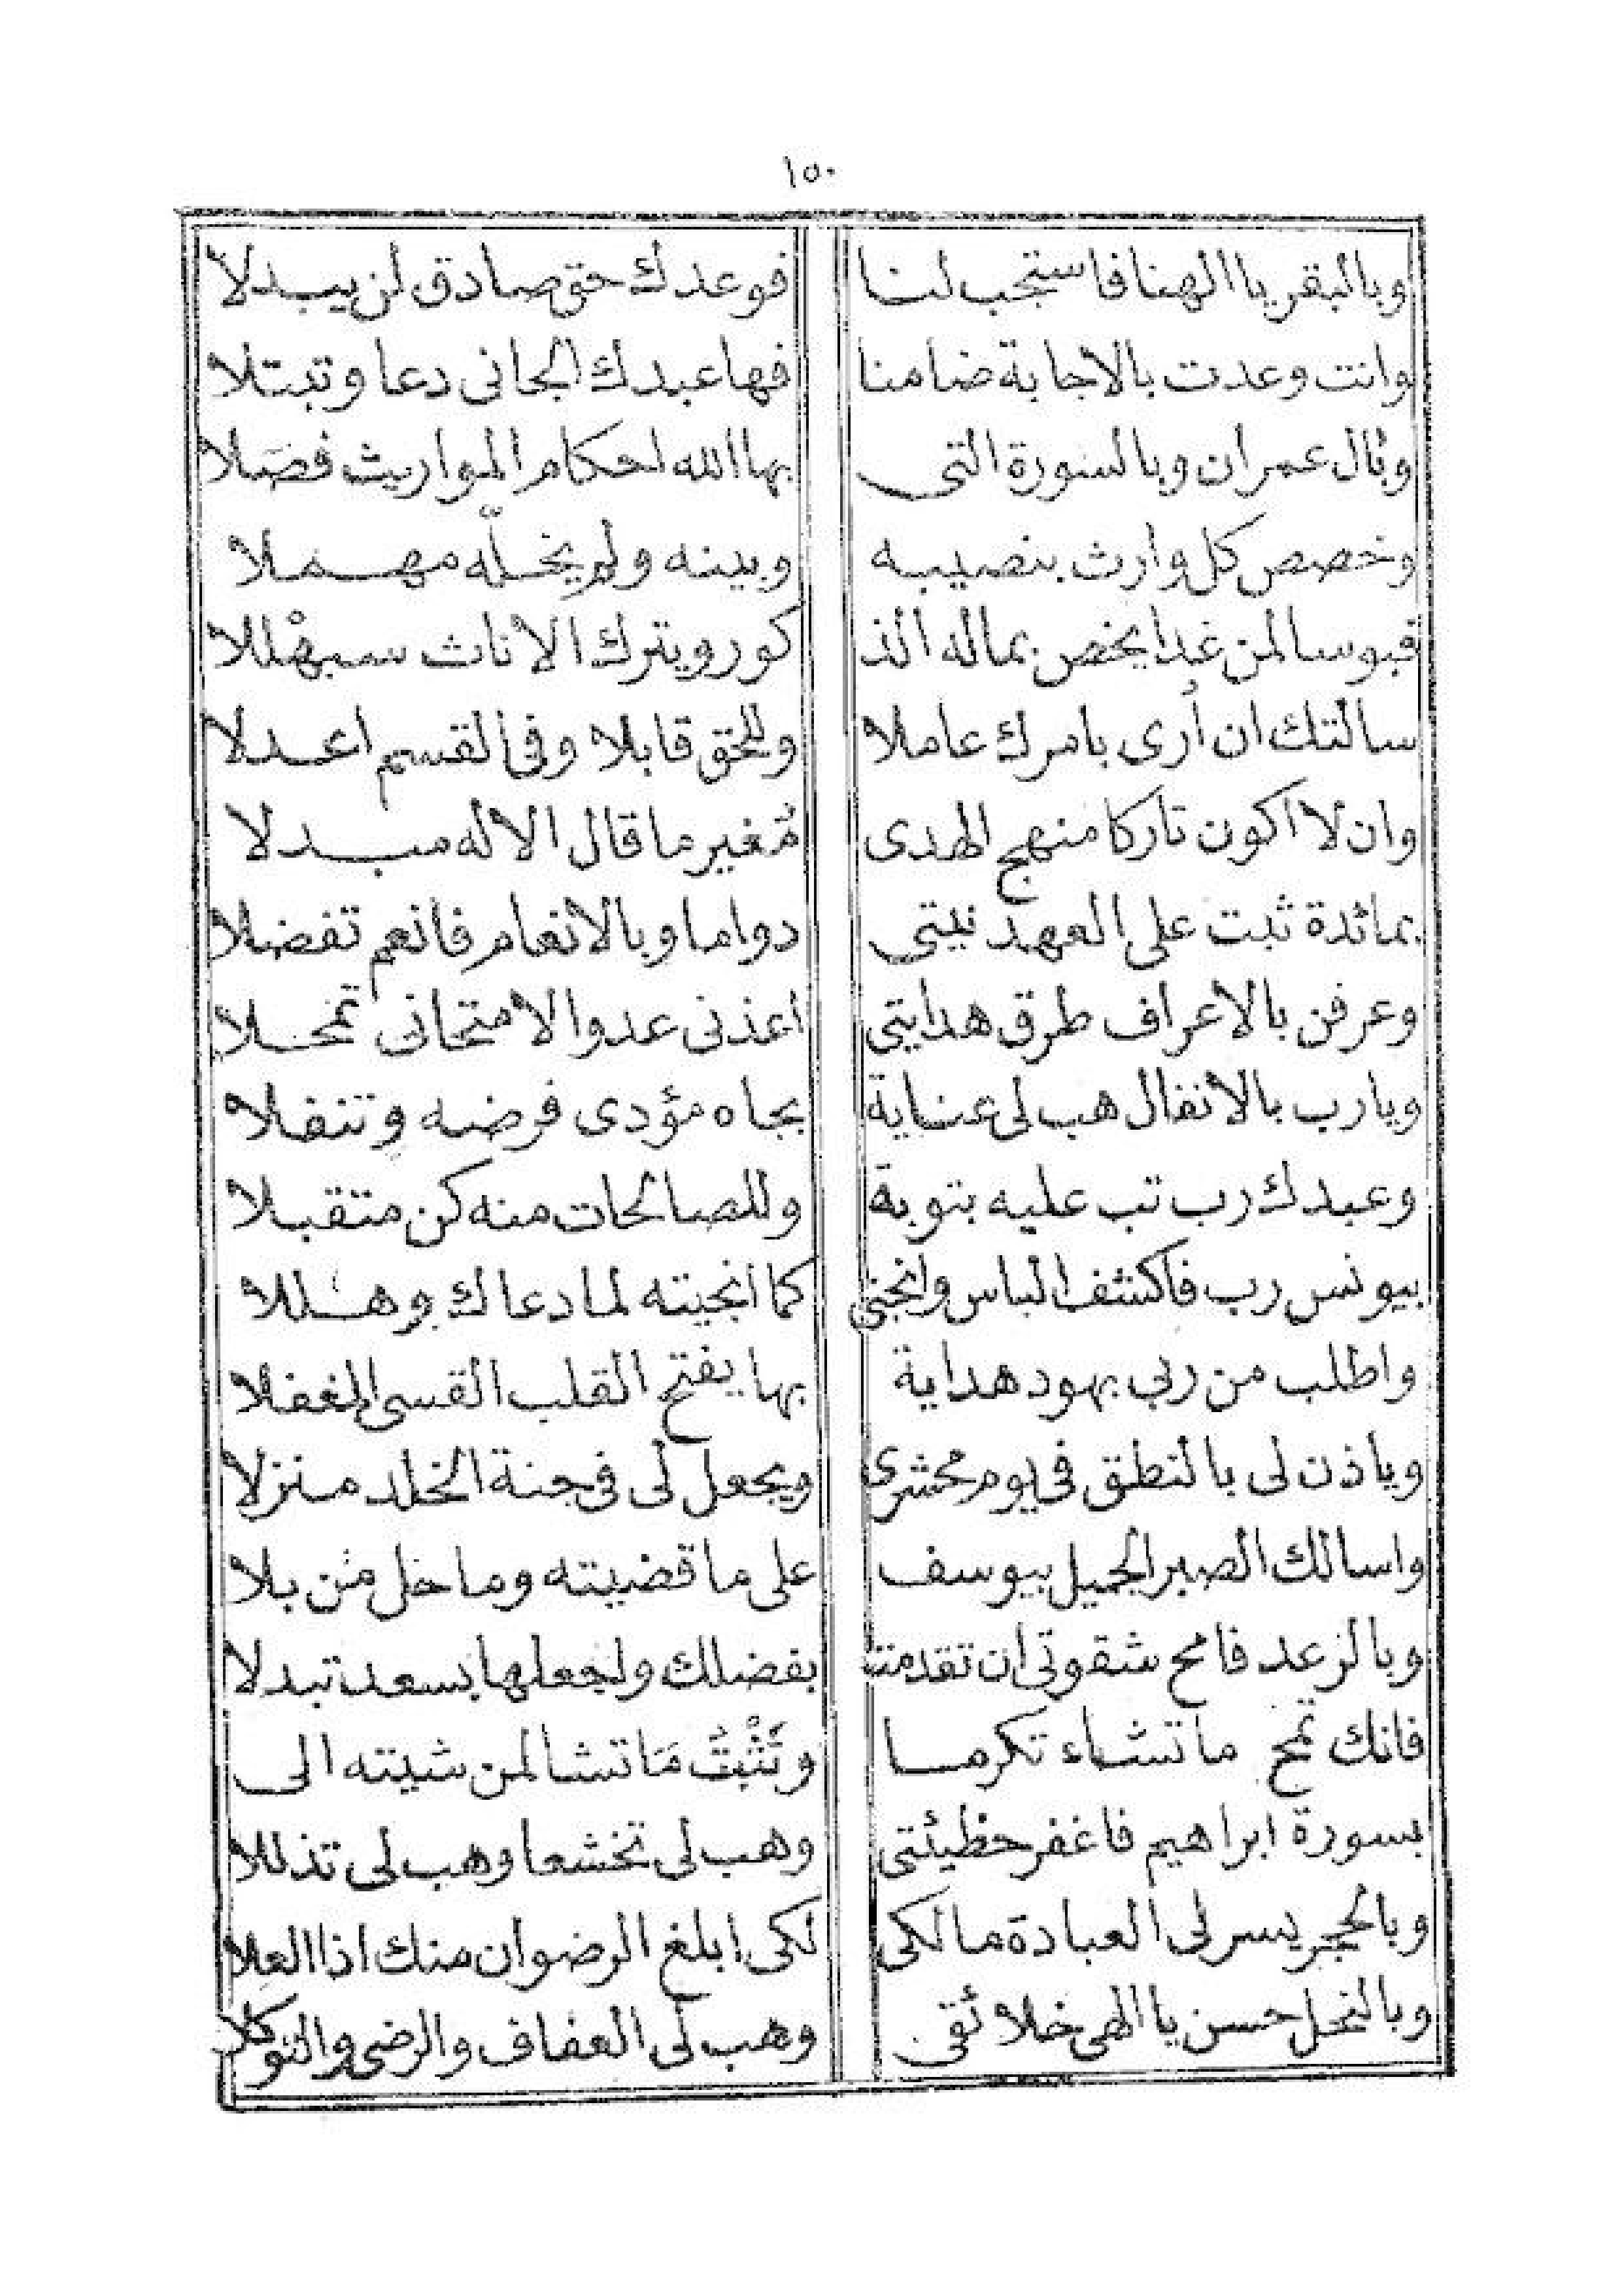 ١٥٠
وبالبقر يا الهنا فاستجب لنا فوعدك حق صادق لن يبدلا
وانت وعدت بالاجابة ضامنا فها عبدك الجانى دعا وتبتلا
وبال عمران وبالسورة التى بها الله احكام المواريث فصَلا
وخصص كل وارث بنصيبه وبينه ولم يخلّه مهملا
فبوسا لمن غدا يخص بماله الذ كور ويترك الاناث سبهْللا
سالتك ان أرى بامرك عاملا وللحق قابلا وفى القسم اعدلا
وان لا اكون تاركا منهج الهدى مُغير ما قال الاله مبدلا
بمائدة ثبت على العهد نيتى دواما وبالانعام فانعم تفضلا
وعرفن بالاعراف طرق هدايتى اعذنى عدوا لامتحانى تمحلا
ويارب بالانفال هب لى عناية بجاه مؤدى فرضه وتنفلا
وعبدك رب تب عليه بتوبة وللصالحات منه كن متقبلا
بيونس رب فاكشف الباس وانجنى كما انجيته لما دعاك وهللا
واطلب من ربى بهود هداية بها يفتح القلب القسى المغفلا
وياذن لى بالنطق فى يوم محشرى ويجعل لى فى جنة الخلد منزلا
واسالك الصبر الجميل بيوسف على ما قضيته وما حل من بلا
وبالرعد فامح شقوتى ان تقدمت بفضلك واجعلها بسعد تبدلا
فانك تمح ما تشاء تكرما وتُثْبِتُ مَا تشا لمن شيته الى
بسورة ابراهيم فاغفر خطيئتى وهب لى تخشعا وهب لى تذللا
وبالحجر يسر لى العبادة مالكى لكى ابلغ الرضوان منك اذا العلا
وبالنحل حسن يا الهى خلائقى وهب لى العفاف والرضى والتوكلا